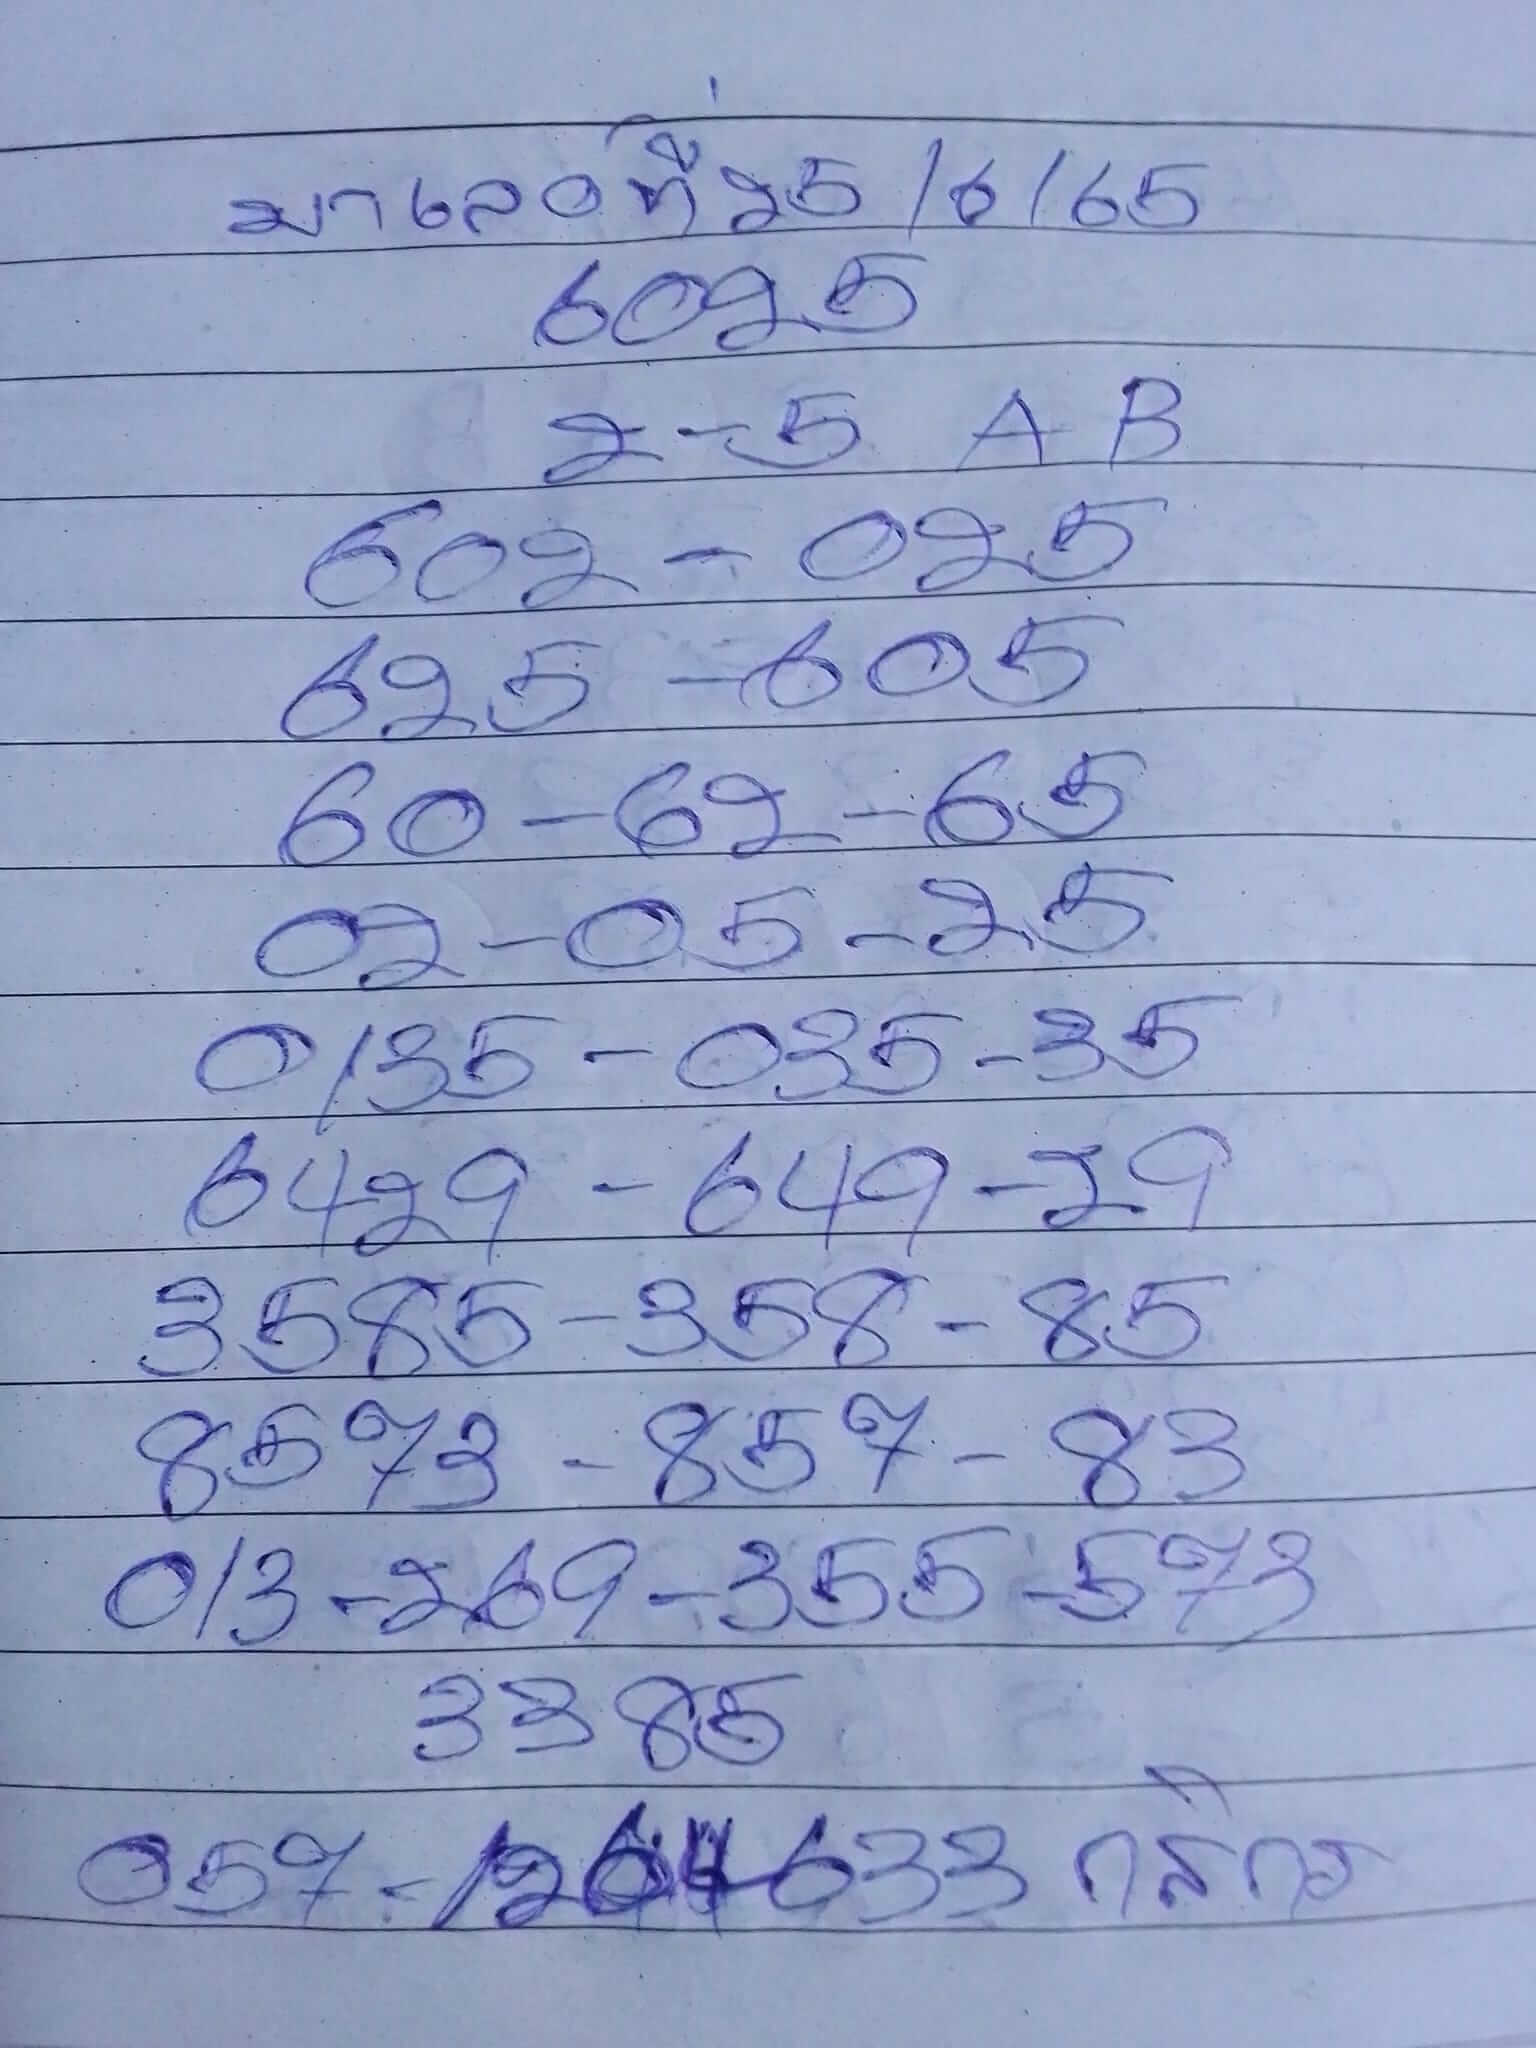 มาเลที่ 25/6/65
6025
2-5 A B
602-025
625-605
60-62-65
02-05-25
0135-035-35
6429-649-29
3585-358-85
8573-857-83
013-269-355-573
3385
057- 633